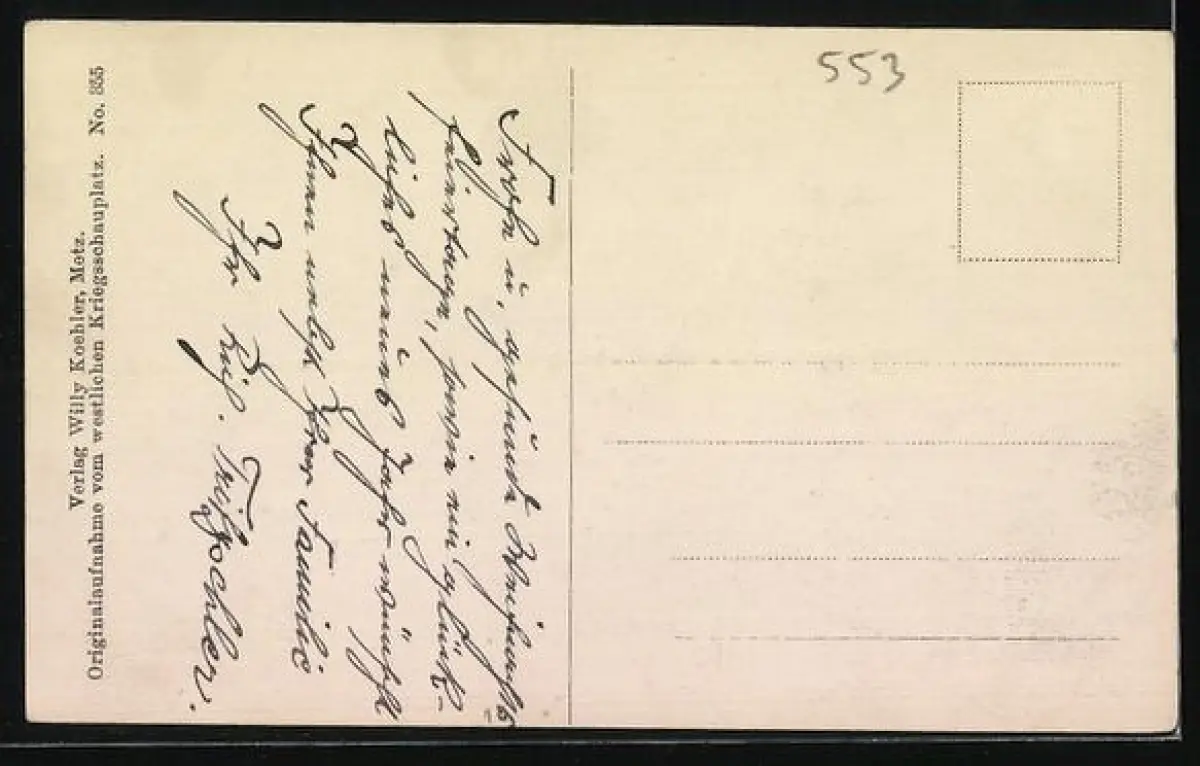 553
Frohe u. gesunde Weihnachts
feiertage, sowie ein glück-
liches neues Jahr wünscht
Ihnen nebst Ihrer Familie
Ihr
Verlag Willy Koehler, Metz.
Originalaufnahme vom westlichen Kriegsschauplatz. No. 355